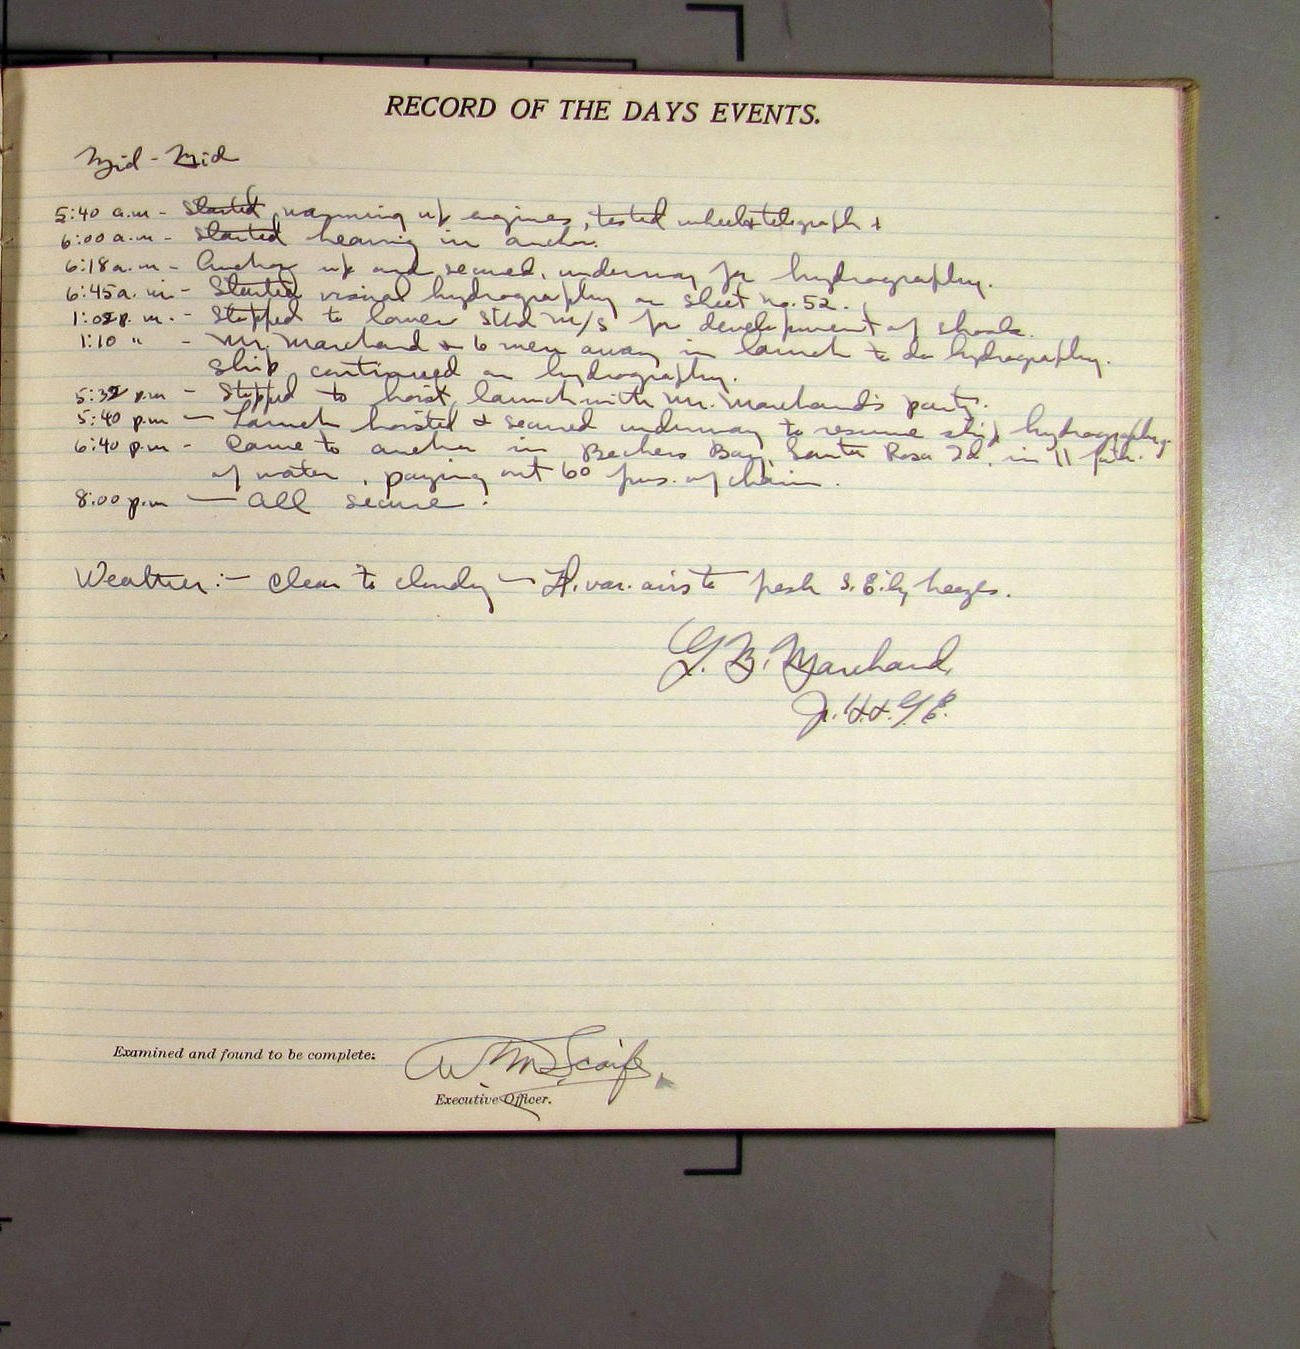 RECORD OF THE DAYS EVENTS.
Mid - Mid
5:40 a.m - Started warming up engines, tested wheel & telegraph &
6:00 a.m - Started heaving in anchor.
6:18 a.m - Anchor up and secured, underway for hydrography.
6:45 a.m - Started visual hydrography on sheet no. 52.
1:02 p.m. - Stopped to lower stbd m/s for development of shoals.
1:10 " - Mr. Marchand & 6 men away in launch to do hydrography.
Ship continued on hydrography.
5:32 p.m - Stopped to hoist launch with Mr. Marchand's party.
5:40 p.m - Launch hoisted & secured underway to resume ship hydrography.
6:40 p.m - Came to anchor in Bechers Bay, Santa Rosa Id. in 11 fath.
of water, paying out 60 fms. of chain.
8:00 p.m - All secure.
Weather:- Clear to cloudy - Lt. var. airs to fresh S. E.'ly breezes.
G. B. Marchand,
Jr. H. & G. E.
Examined and found to be complete:
W M Scaife,
Executive Officer.